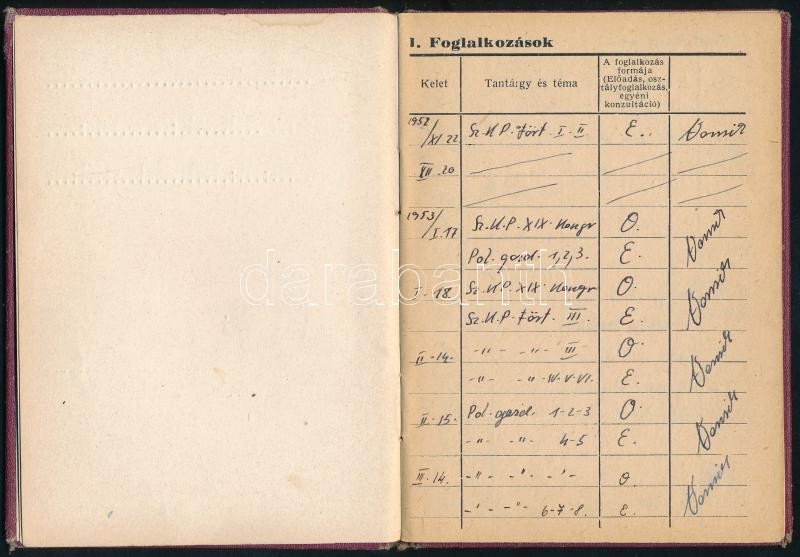 1. Foglalkozások
Kelet
Tantárgy és téma
A foglalkozás
formája
(Előadás, osz-
tályfoglalkozás,
egyéni
konzultáció)
1952/XI 22. Sz. K. P. Tört. I. II E..
XII. 20
1953/I. 17 Sz. K. P. XIX. Kongr O.
Pol. gazd. 1, 2, 3. E.
I - 18. Sz. K. P. XIX. Kongr O.
Sz. K. P. Tört. III. E.
II - 14. -"- -"- III O.
-"- -"- IV - V - VI. E.
II - 15. Pol. gazd. 1-2-3 O.
-"- -"- 4-5 E.
III - 14. -"- -"- -"- O.
-"- -"- 6-7-8. E.
darabanth